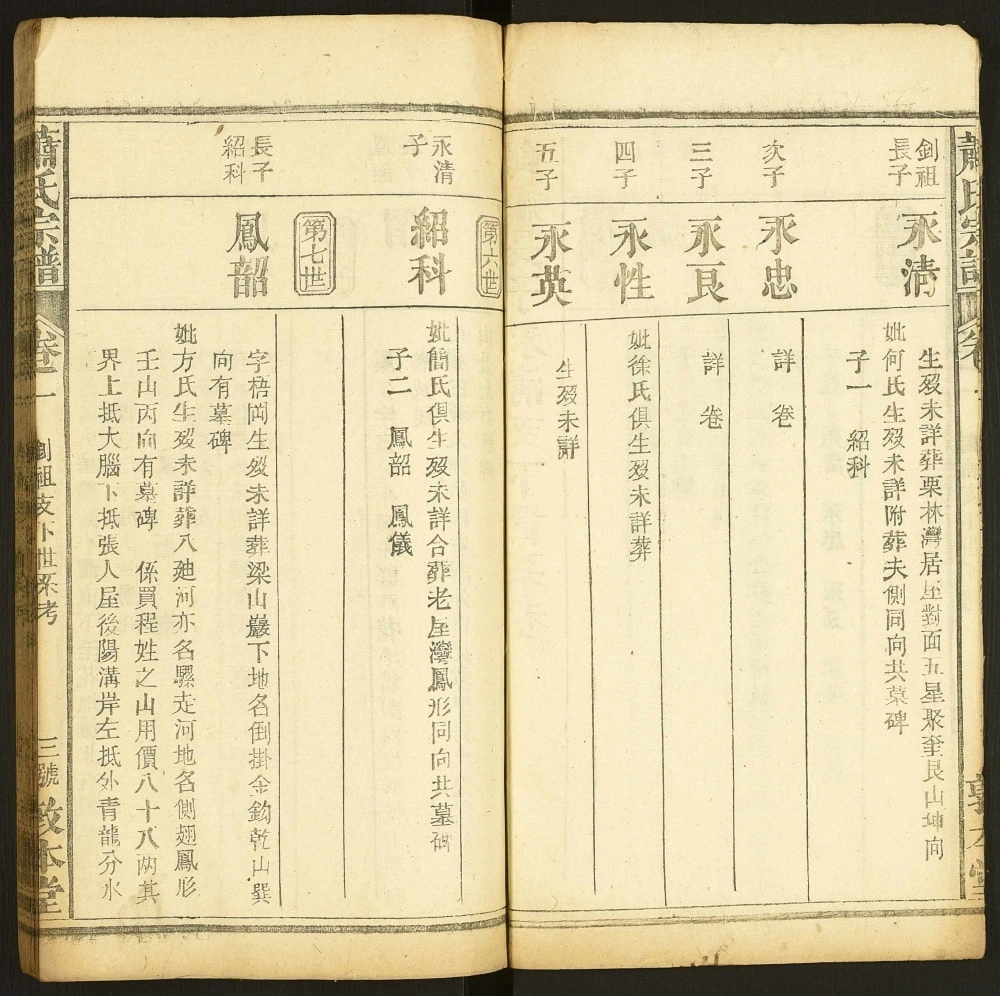 蕭氏宗譜
釗祖長子
永清
生歿未詳葬栗林灣居屋對面五星聚奎艮山坤向
妣何氏生歿未詳附葬夫側同向共墓碑
子一 紹科
次子
永忠
詳 卷
三子
永良
詳 卷
四子
永性
妣徐氏俱生歿未詳葬
五子
永英
生歿未詳
第六世
永清子
紹科
妣簡氏俱生歿未詳合葬老屋灣鳳形同向共墓碑
子二 鳳韶 鳳儀
第七世
紹科長子
鳳韶
字梧岡生歿未詳葬梁山巖下地名倒掛金鈎乾山巽
向有墓碑
妣方氏生歿未詳葬八廸河亦名騾走河地名側翅鳳形
壬山丙向有墓碑 係買程姓之山用價八十八兩其
界上抵大腦下抵張人屋後陽溝岸左抵外青龍分水
蕭氏宗譜 卷 釗祖支下世系考 三號 敦本堂